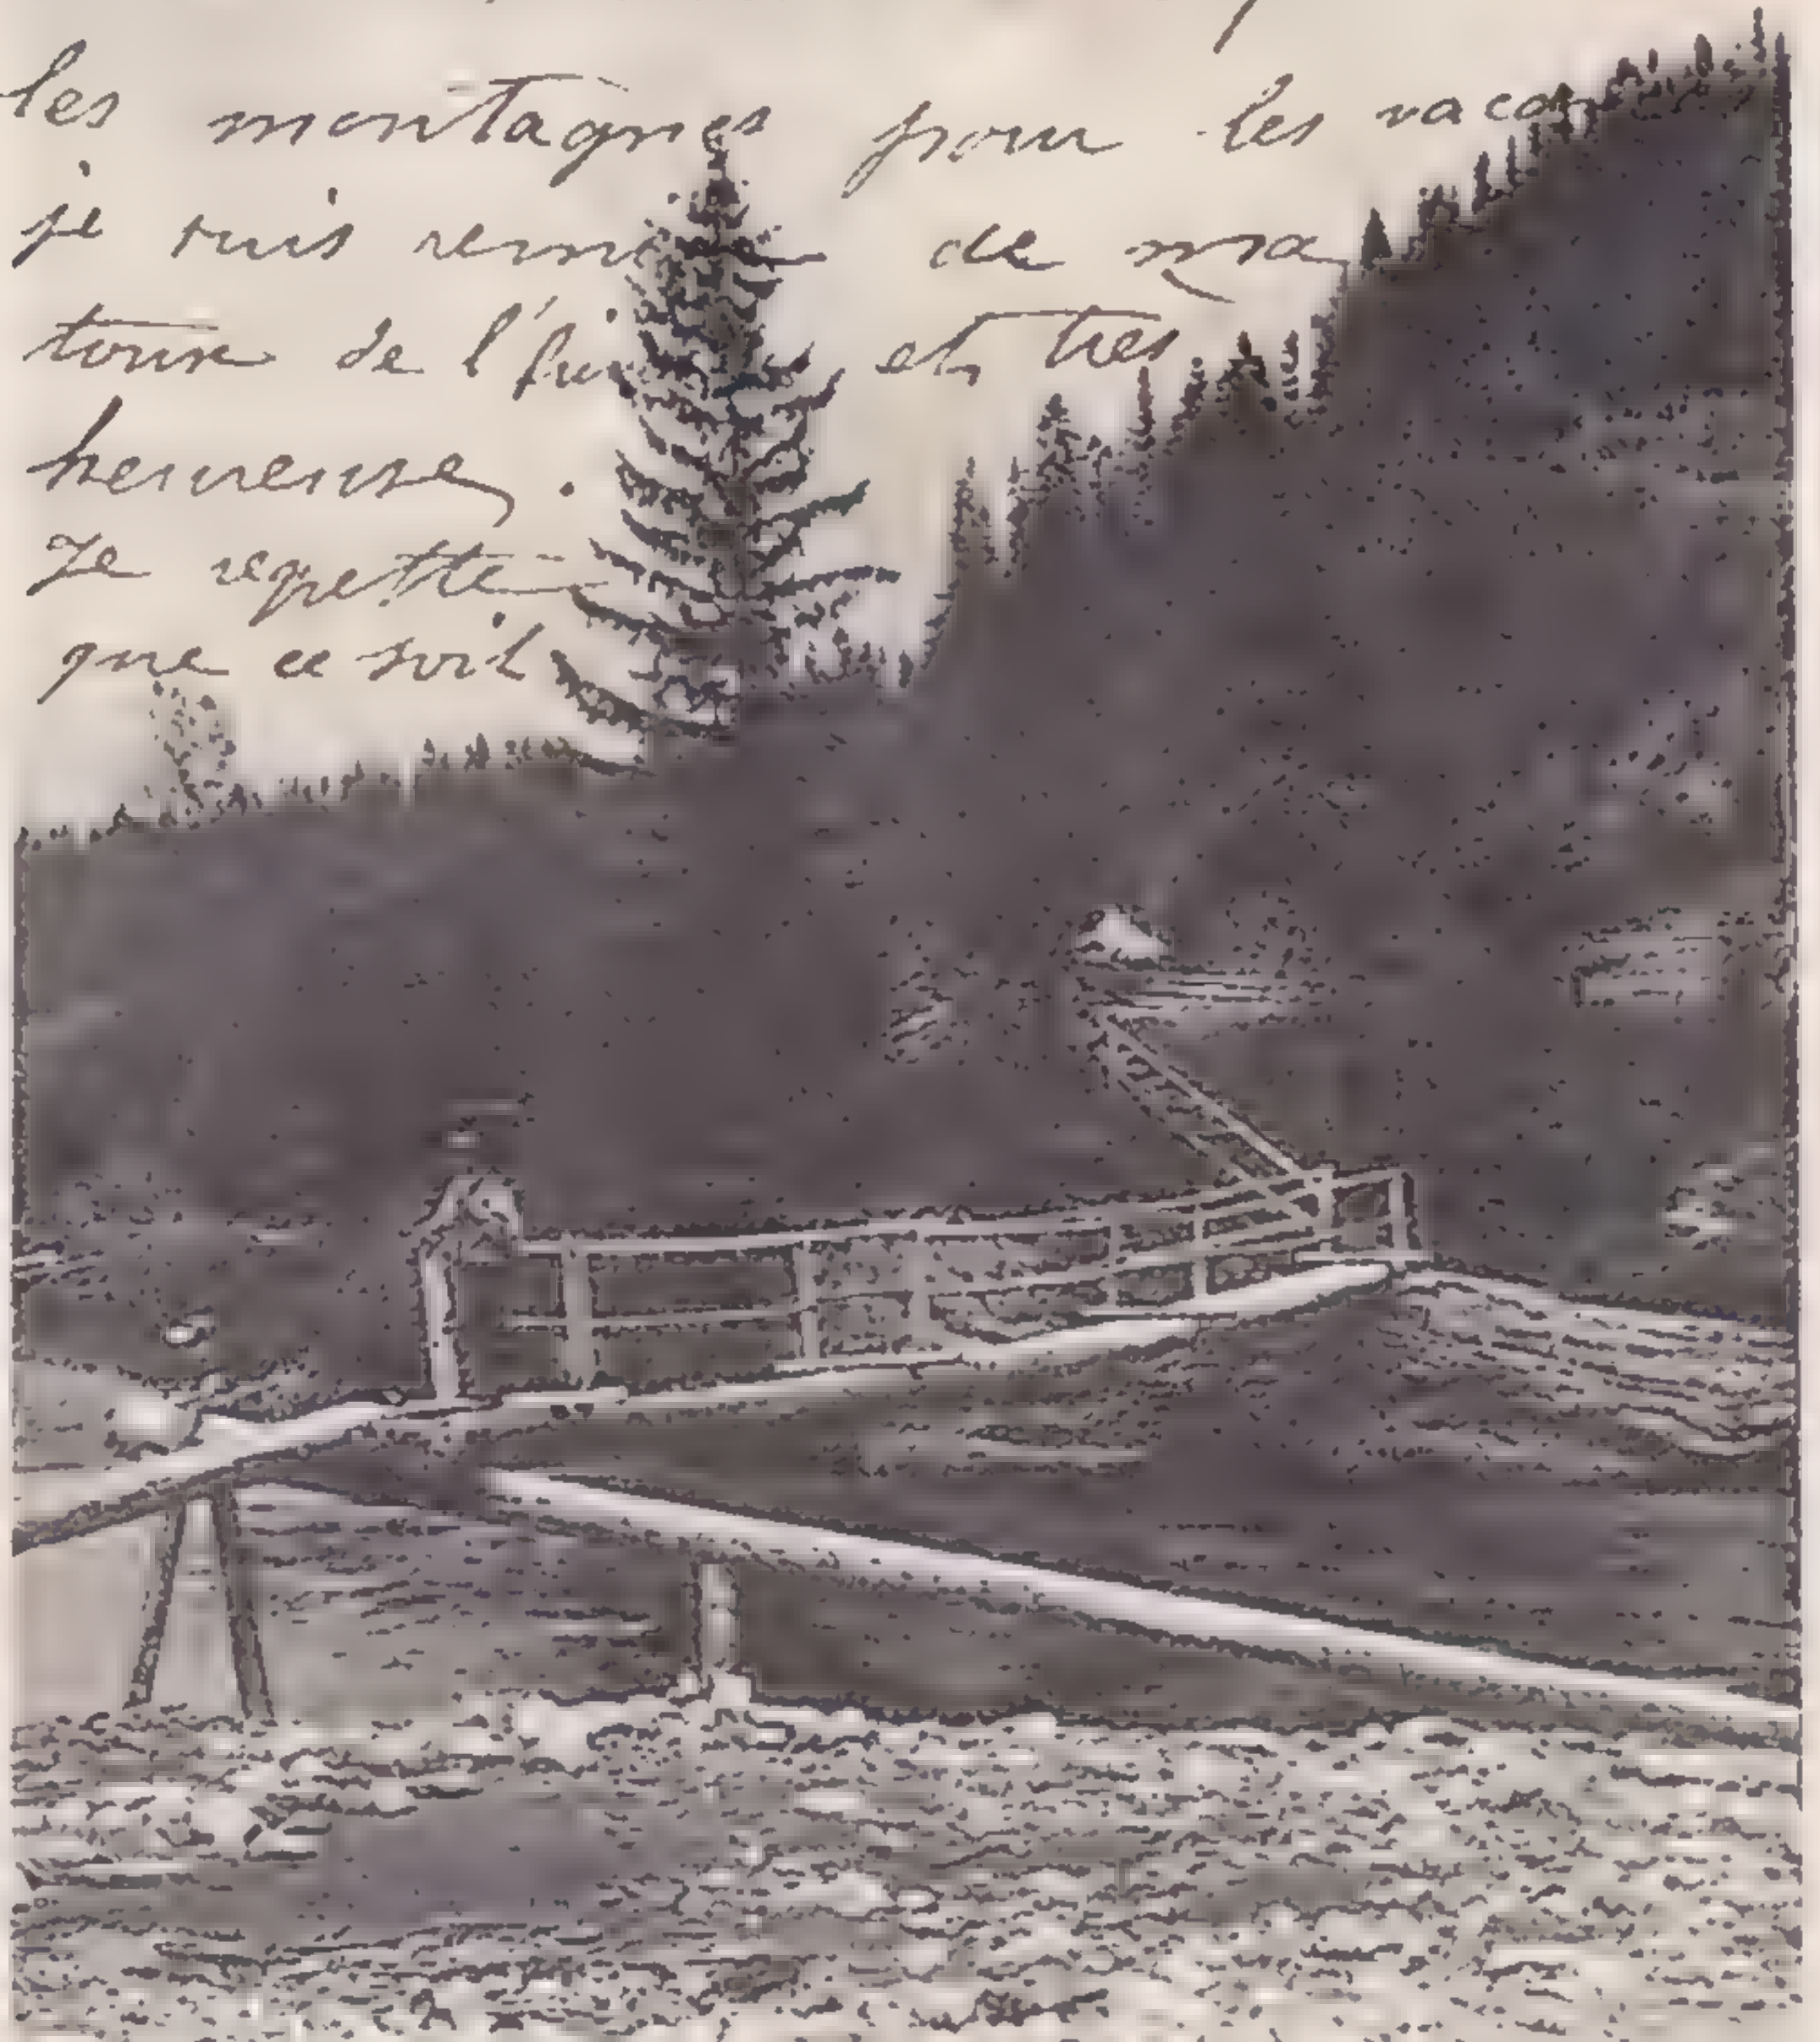 les montagnes pour les
je suis de ma
tour de l' et tres
heureuse.
Je regrette
que ce soit